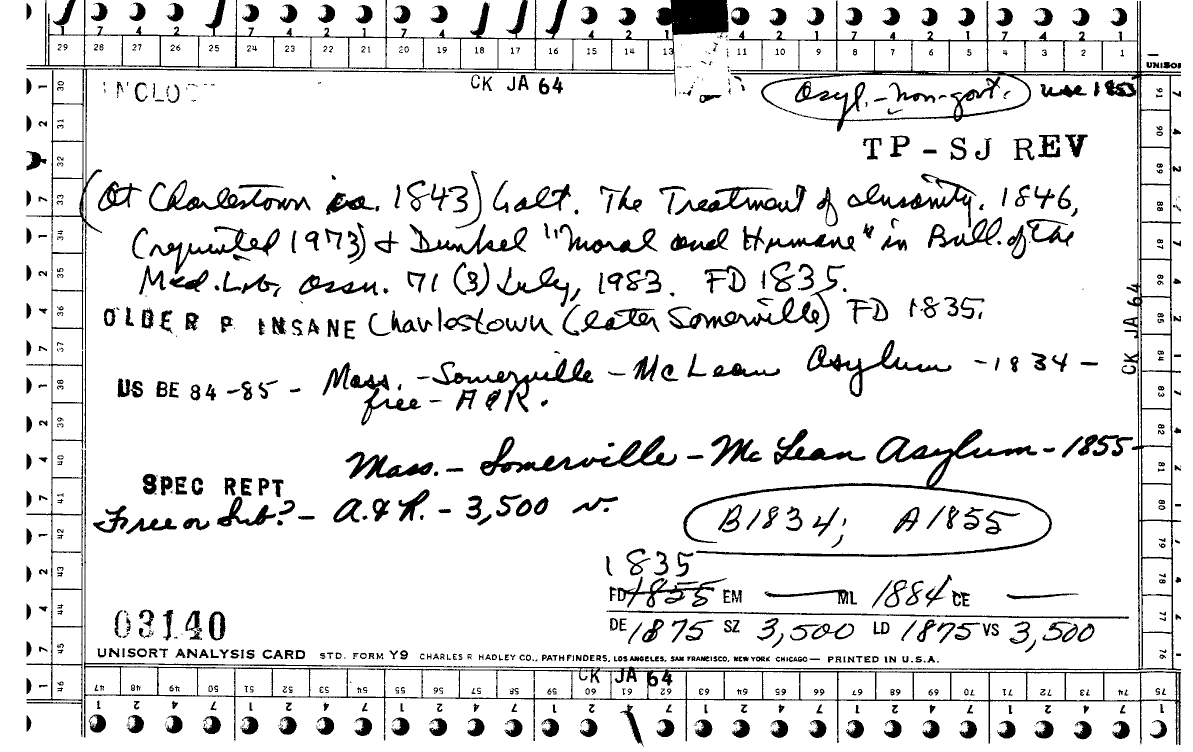 1 7 4 2 1 7 4 2 1 7 4 2 1 7 4 2 1
29 28 27 26 25 24 23 22 21 20 19 18 17 16 15 14 13 11 10 9 8 7 6 5 4 3 2 1
UNISOR
CK JA 64
Asyl.-non-govt. use 1853
TP-SJ REV
(At Charlestown ca. 1843) Galt. The Treatment of Insanity. 1846,
(reprinted 1973) & Dunkel "Moral and Humane" in Bull. of the
Med. Lib. Assn. 71 (3) July, 1983. FD 1835.
OLDER P INSANE Charlestown (later Somerville) FD 1835.
US BE 84-85 - Mass. - Somerville - McLean Asylum - 1834 -
free - A&R.
Mass. - Somerville - McLean Asylum - 1855-
SPEC REPT
Free or Sub.? - A.&R. - 3,500 v.
B1834; A1855
1835
FD 1855 EM — ML 1884 CE —
DE 1875 SZ 3,500 LD 1875 VS 3,500
03140
UNISORT ANALYSIS CARD STD. FORM Y9 CHARLES R HADLEY CO., PATHFINDERS, LOS ANGELES, SAN FRANCISCO, NEW YORK CHICAGO— PRINTED IN U.S.A.
CK JA 64
CK JA 64
30 31 32 33 34 35 36 37 38 39 40 41 42 43 44 45 46
91 90 89 88 87 86 85 84 83 82 81 80 79 78 77 76 75
47 48 49 50 51 52 53 54 55 56 57 58 59 60 61 62 63 64 65 66 67 68 69 70 71 72 73 74